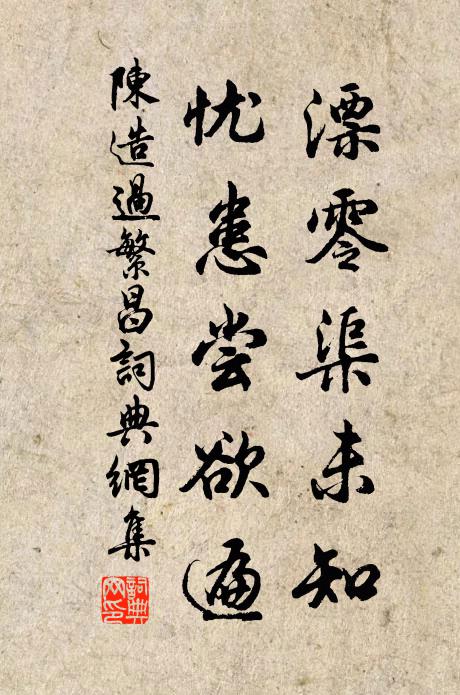 漂零渠未知
忧患尝欲遍
陳造過繁昌詞典網集
詞典
网印